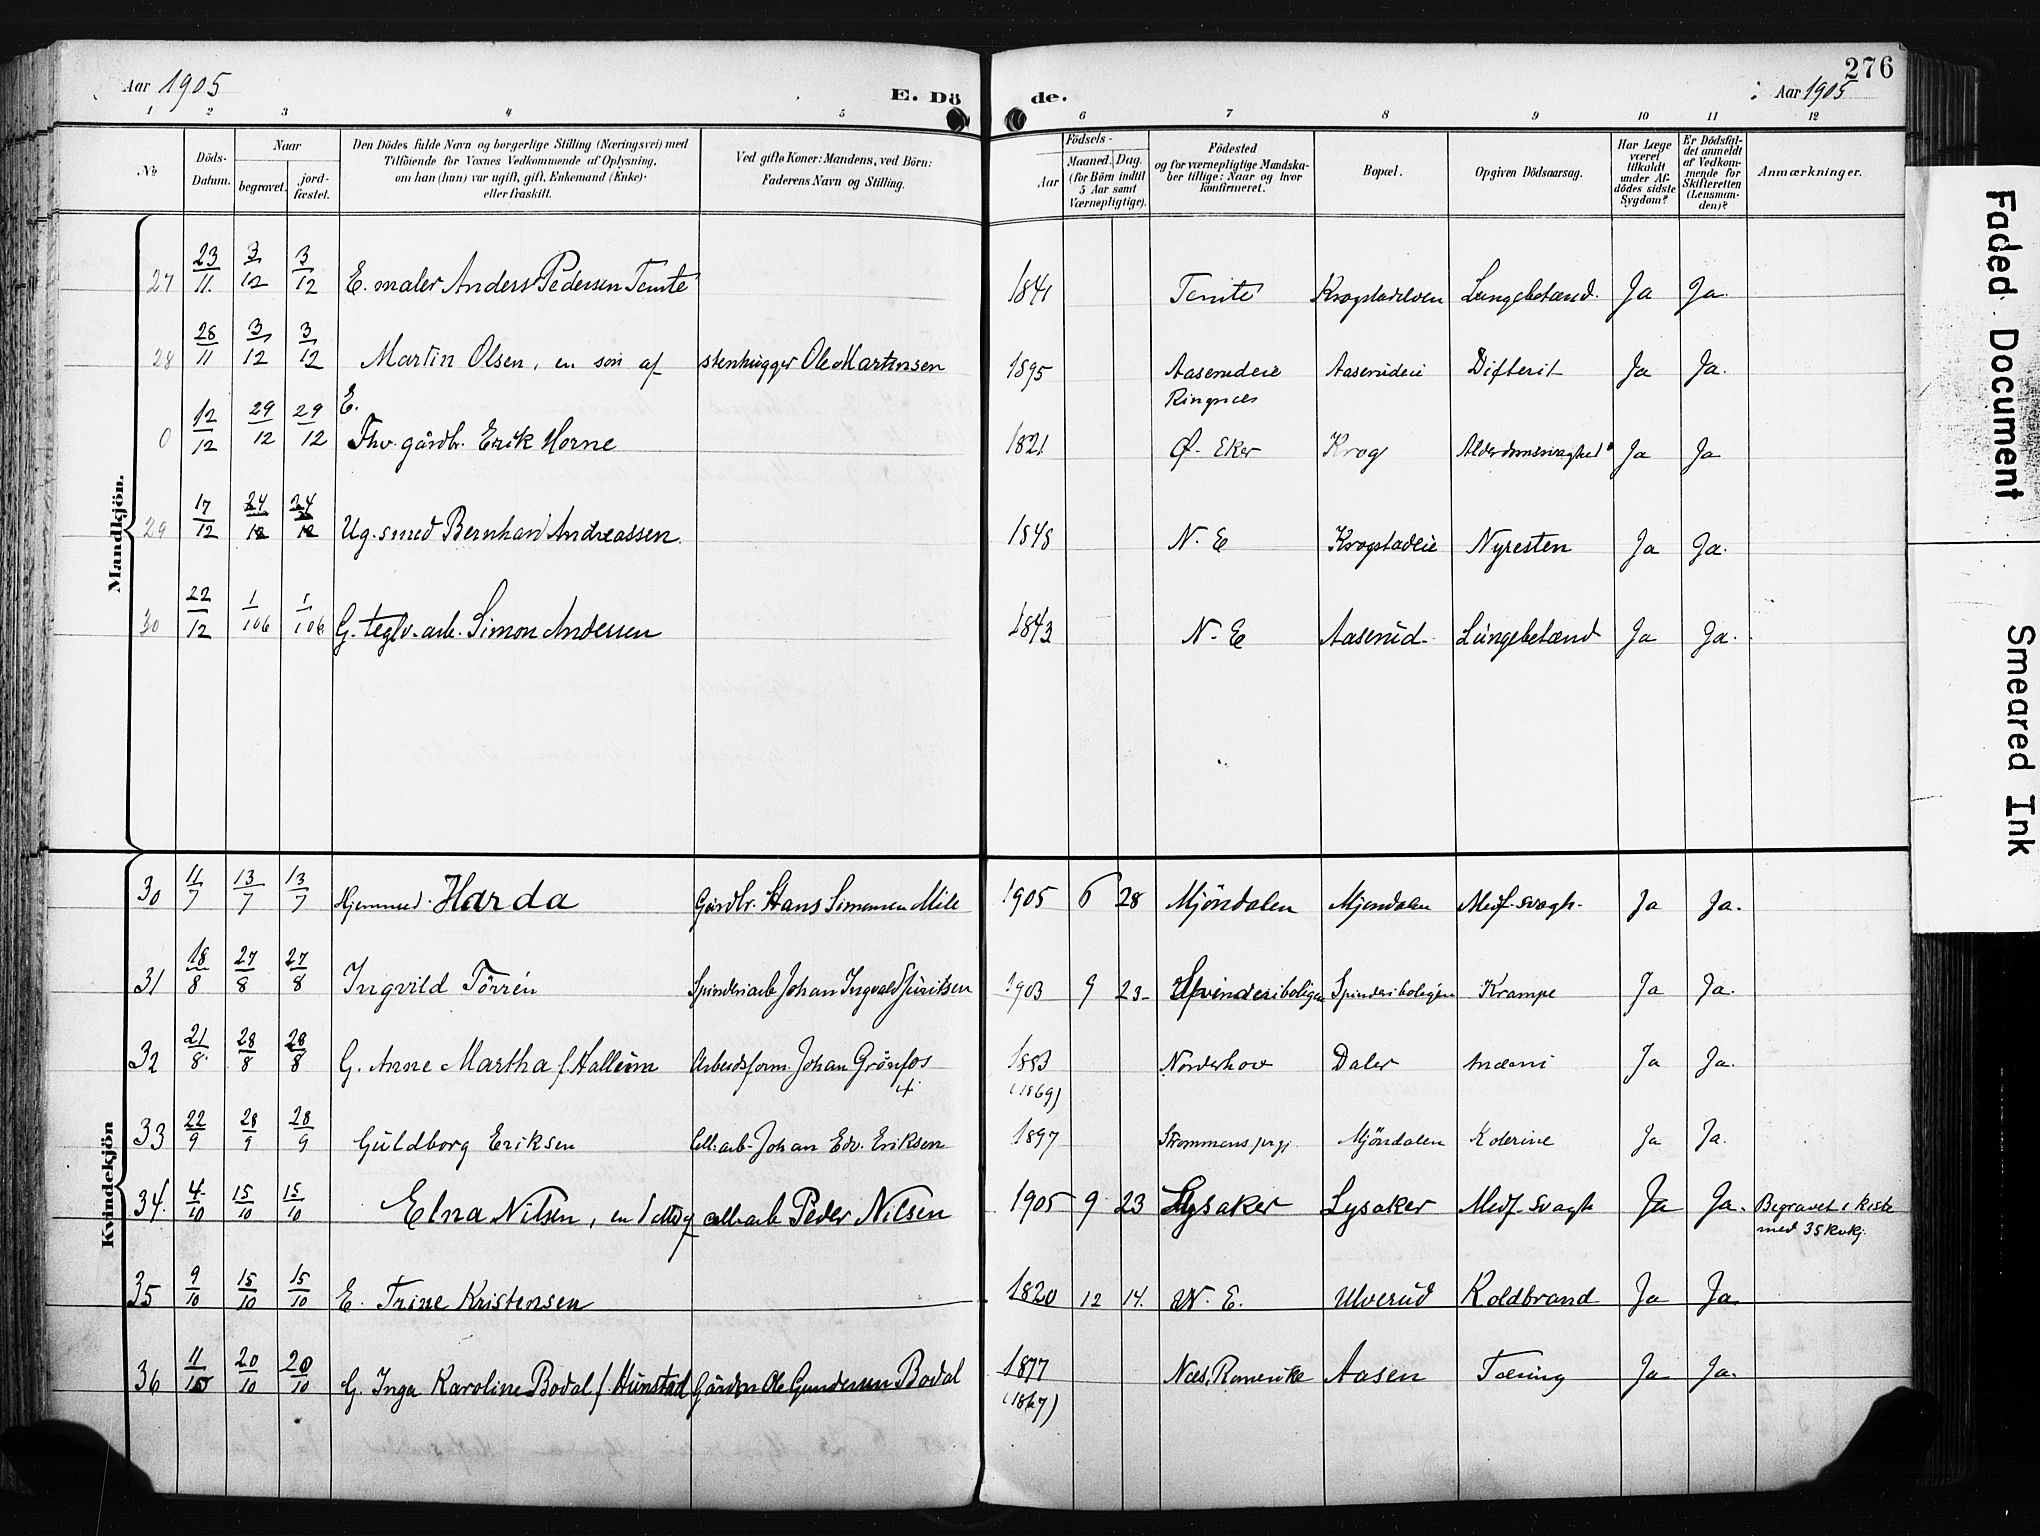 276
Aar 1905
E. Dö de.
Aar 1905
1 2 3 4 5 6 7 8 9 10 11 12
No
Döds-Datum.
Naar
begravet.
jord-fæstet.
Den Dödes fulde Navn og borgerlige Stilling (Næringsvei) med
Tilföiende for Voxnes Vedkommende af Oplysning,
om han (hun) var ugift, gift, Enkemand (Enke)
eller fraskilt.
Ved gifte Koner: Mandens, ved Börn:
Faderens Navn og Stilling.
Födsels-
Aar
Maaned. Dag.
(for Börn indtil
5 Aar samt
Værnepligtige).
Födested
og for værnepligtige Mandska-
ber tillige: Naar og hvor
konfirmeret.
Bopæl.
Opgiven Dödsaarsag.
Har Læge
været
tilkaldt
under Af-
dödes sidste
Sygdom?
Er Dödsfal-
det anmeldt
af Vedkom-
mende for
Skifteretten
(Lensman-
den)?
Anmærkninger.
Mandkjön.
27 23/11 3/12 3/12 E. maler Anders Pedersen Temte 1841 Temte Krogstadelven Lungebetænd. Ja Ja.
28 28/11 3/12 3/12 Martin Olsen, en sön af stenhugger Ole Martinsen 1895 Aaserudeie Aaserudeie Difterit Ja Ja.
Ringnæs
E.
0 12/12 29/12 29/12 Fhv. gårdbr. Erik Horne 1821 Ø. Eker Krog Alderdomssvaghed Ja Ja
29 17/12 24/12 24/12 Ug. smed Bernhard Andreassen. 1848 N. E Krogstadeie Nyresten Ja Ja.
30 22/12 1/1 06 1/1 06 G. teglv. arb. Simon Andersen 1843 N. E Aaserud. Lungebetænd Ja Ja.
Kvindekjön
30 11/7 13/7 13/7 Hjemmed. Harda Gårdbr. Hans Simensen Mile 1905 6 28 Mjöndalen Mjöndalen Medf. svagh. Ja Ja.
31 18/8 27/8 27/8 Ingvild Törrén Spinderiarb Johan Ingvald 1903 9 23 Spinderiboligen Spinderiboligen Krampe Ja Ja.
32 21/8 28/8 28/8 G. Anne Martha f. Halleim Arbeidsform. Johan Grönfos 1883 Norderhov Daler Ja Ja.
(1869)
33 22/9 28/9 28/9 Guldborg Eriksen Cell: arb. Johan Edv. Eriksen 1897 Mjöndalen Kolerine Ja Ja.
34. 4/10 15/10 15/10 Elna Nilsen, en cellarb Peder Nilsen 1905 9 23 Lysaker Lysaker Medf svagh Ja Ja. Begravet i kiste
med 35 kvkj.
35 9/10 15/10 15/10 E. Trine Kristensen 1820 12 14. N. E. Ulverud Koldbrand Ja Ja.
36 11/10 20/10 20/10 G. Inga Karoline Bodal f. Hunstad Gårdbr Ole Gundersen Bodal 1877 Næs, Romerike Aasen Tæring Ja Ja.
(1867)
Faded Document
Smeared Ink